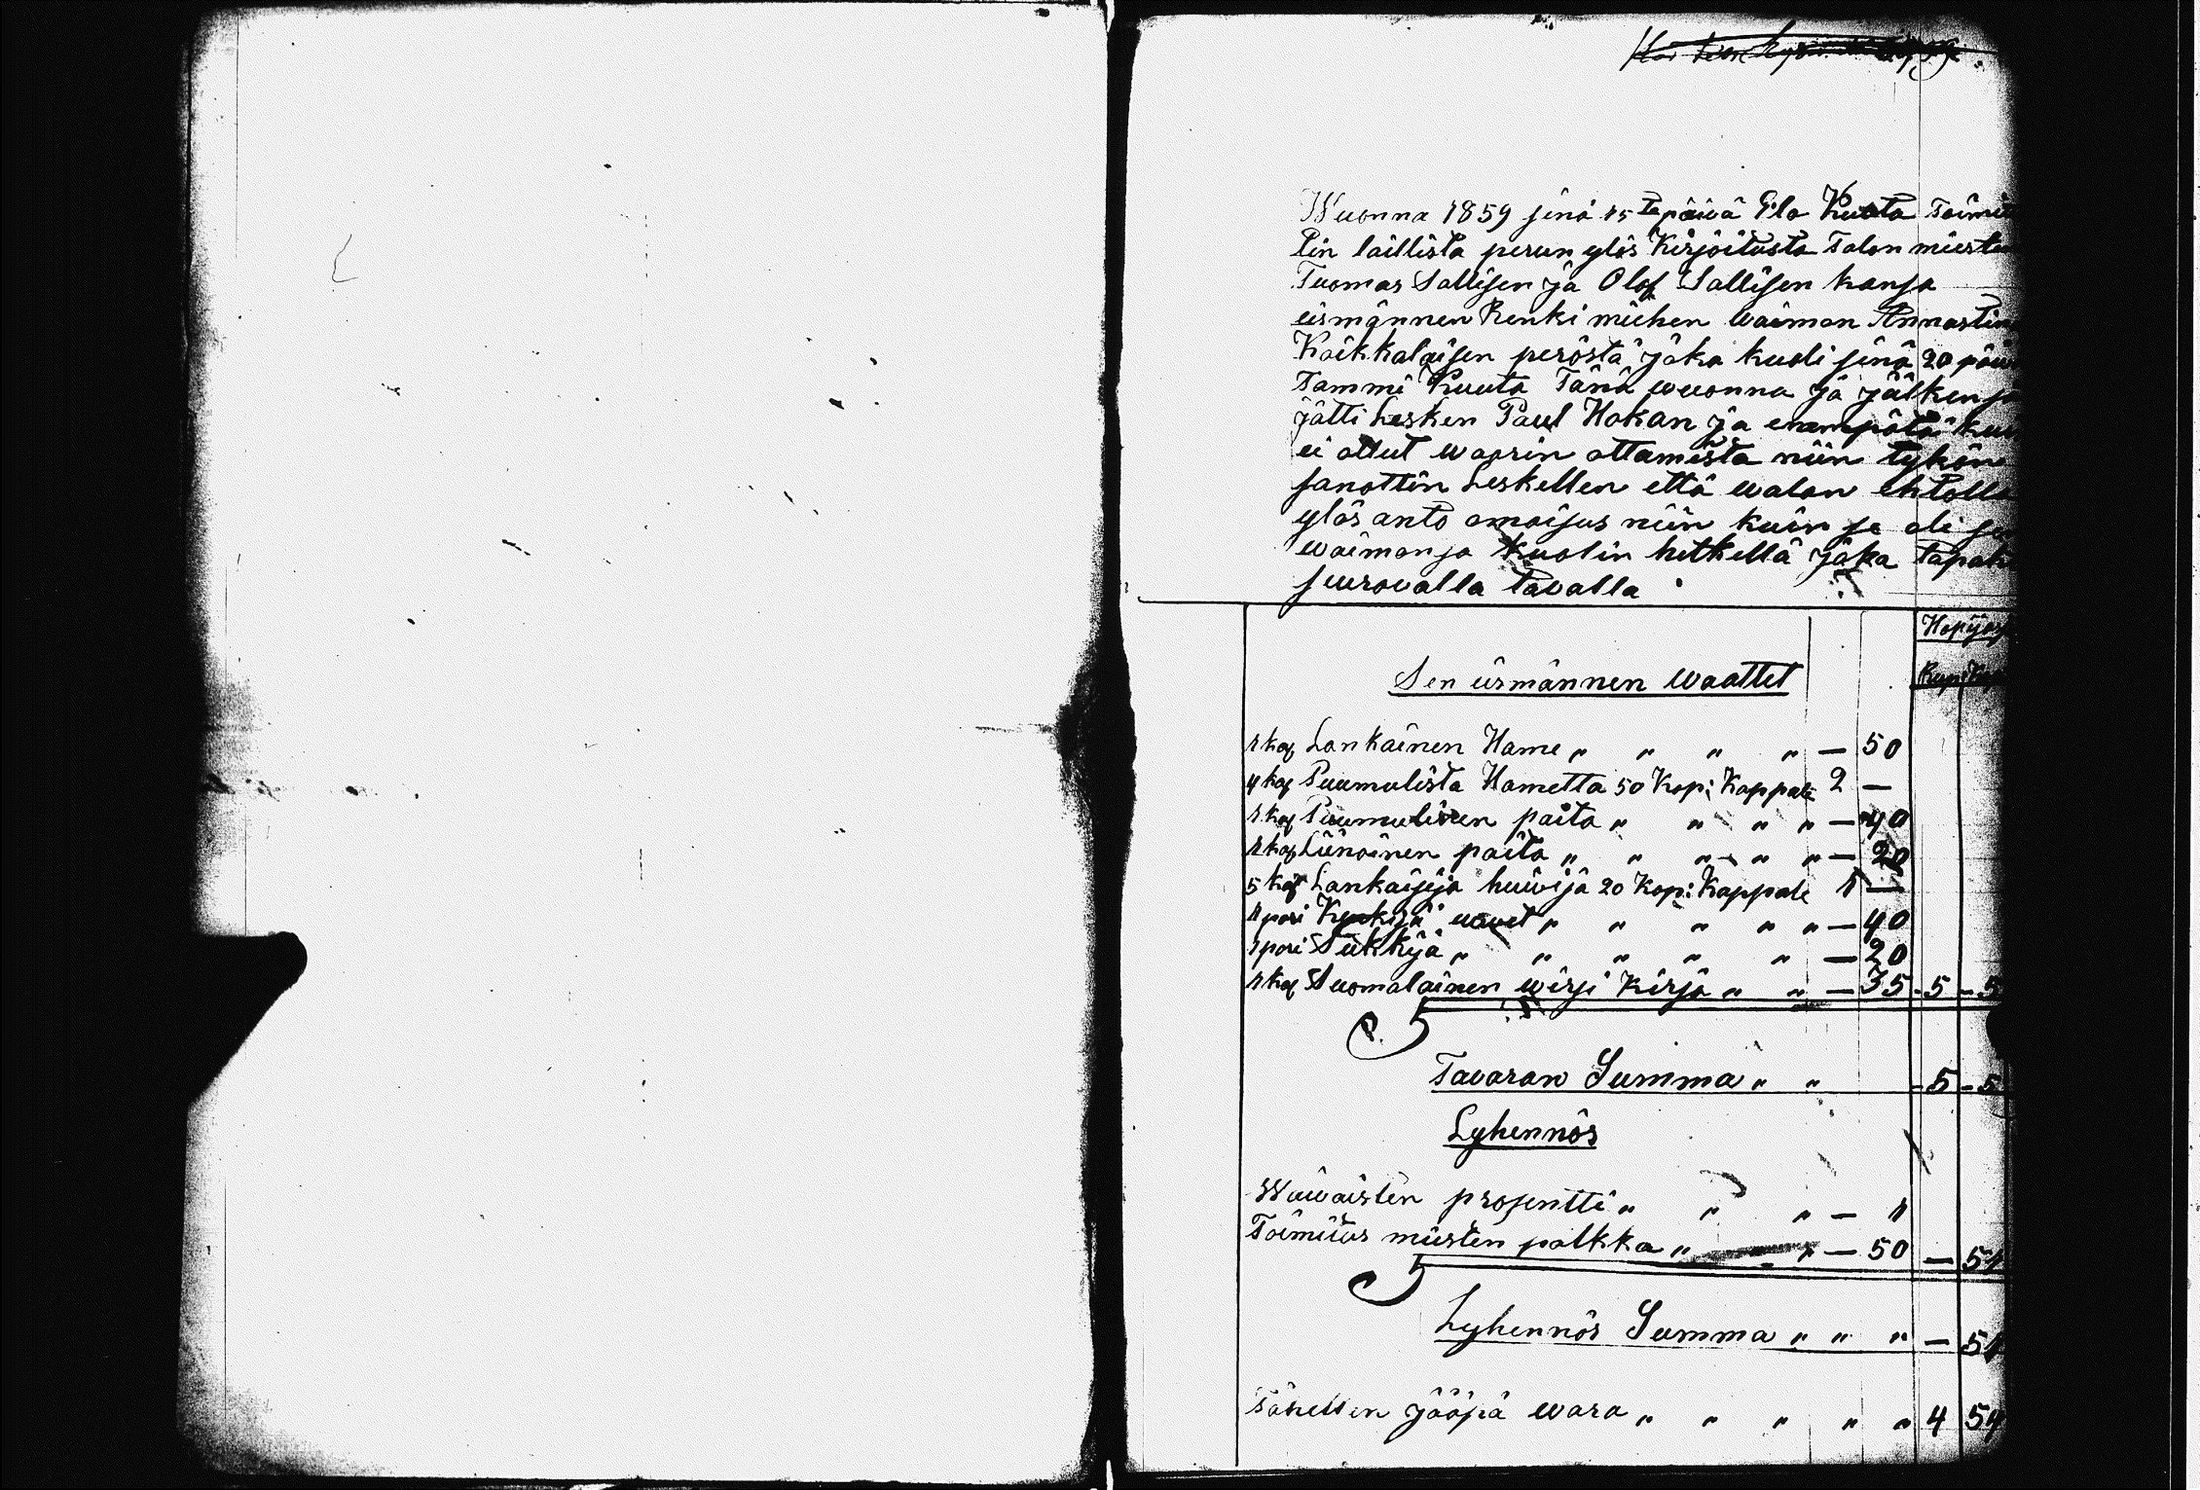 Wuonna 1859 sinä 15 ta päivä Elo Kuuta Toimit
tin laillista perun ylös Kirjoitusta Talon miesten
Tuomas Sallisen ja Olof Sallisen kansa
eismännen Renki miehen Waimon Annastin
Kaikkalaisen peröstä joka kuoli sinä 20 päiv
Tammi Kuuta Tänä wuonna ja jälkensä
jätti Lesken Paul Hokan ja enempätä
ei ollut waarin ottamista niin tykön
sanottin Leskellen että walan ehtolla
ylös anto omaisus niin kuin se oli
waimonsa Kuolin hetkellä joka tapah
seuravalla tavalla
Hopijas
Rup: Kop
Sen eismännen waattet
1 kap Lankainen Hame " " " " — 50
4 kap Puumulista Hametta 50 Kop: Kappale 2 —
1 kap Puumulinen paita " " " " — 40
1 kap Liinainen paita " " " " " — 20
5 kap Lankaisija huivija 20 Kop: Kappale 1 —
1 pari " " " " " — 40
1 pari Sukkija " " " " " — 20
1 kap Suomalainen wirsi Kirja " " — 35 - 5 - 5
S.
Tavaran Summa " " - 5 - 5
Lyhennös
Waiwaisten prosentti " " " — 1
Toimitus miesten palkka " " — 50 — 51
Lyhennös Summa " " " — 51
Tähellen jääpä wara " " " " " 4 54